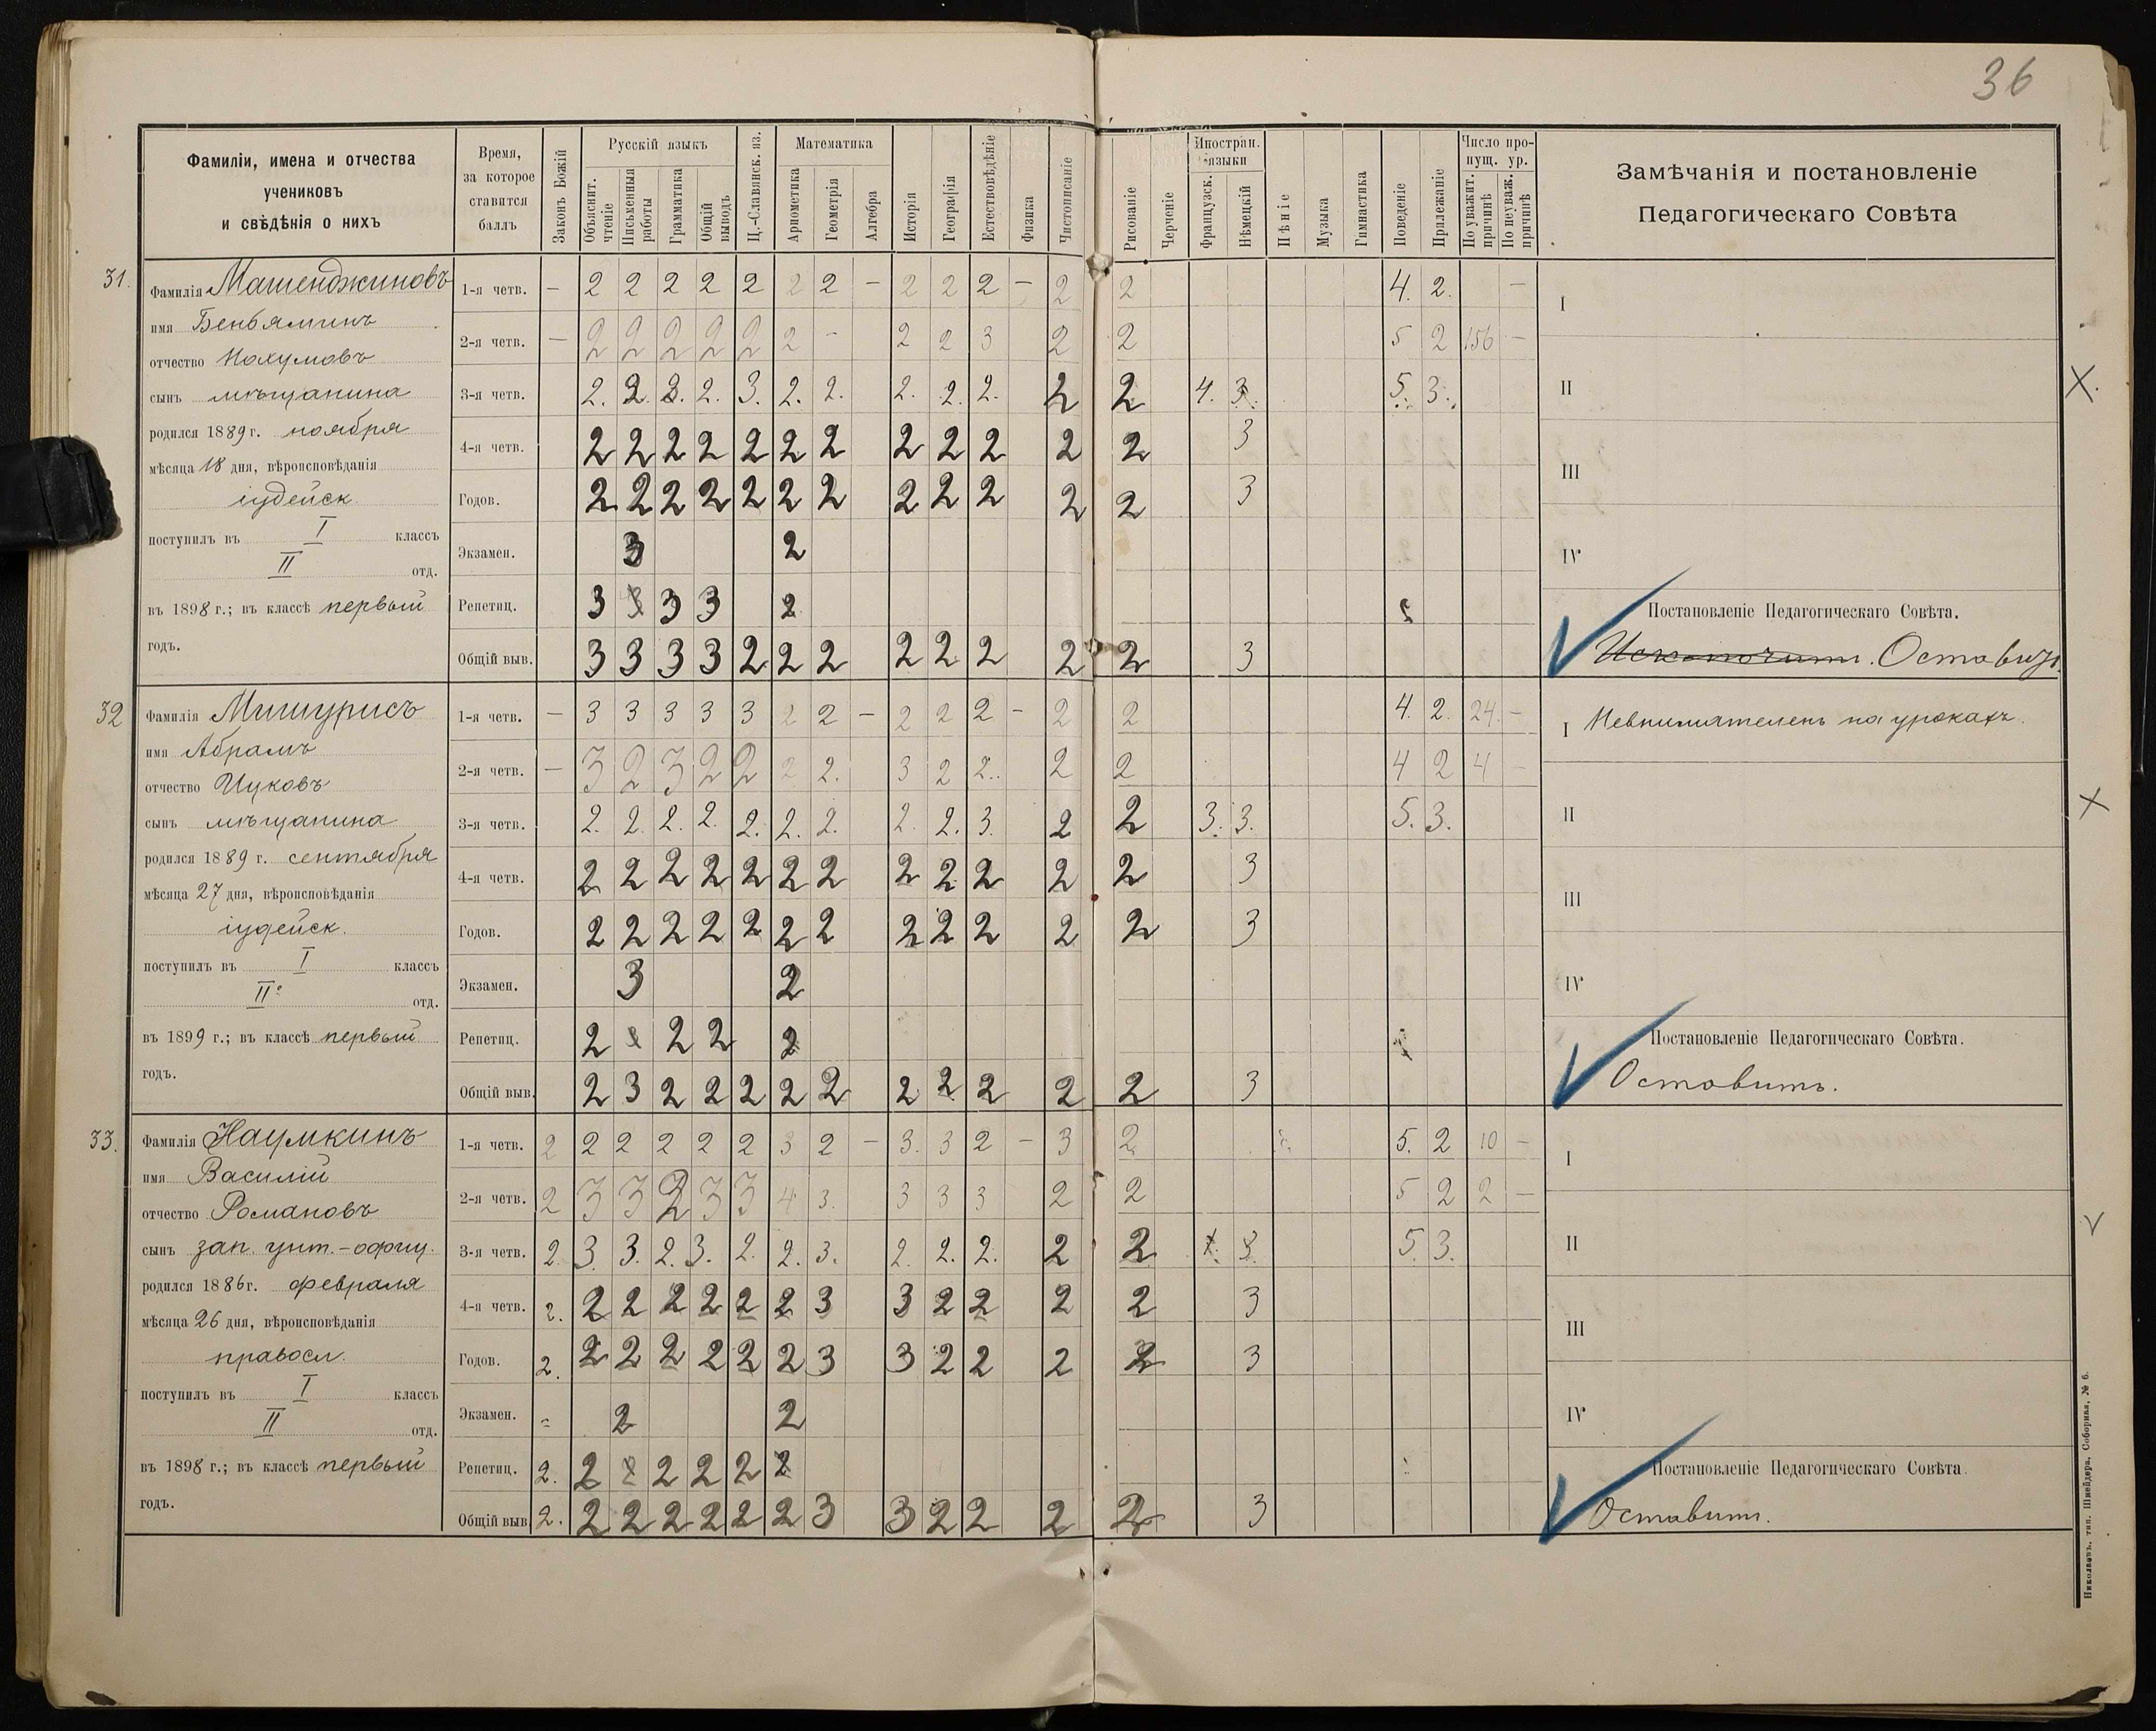 36
Фамиліи, имена и отчества
учениковъ
и свѣдѣнія о нихъ
Время,
за которое
ставится
баллъ
Законъ Божій
Русскій языкъ
Объяснит. чтеніе
Письменныя работы
Грамматика
Общій выводъ
Ц.-Славянск. яз.
Математика
Ариѳметика
Геометрія
Алгебра
Исторія
Географія
Естествовѣдѣніе
Физика
Чистописаніе
Рисованіе
Черченіе
Иностран. языки
Французск.
Нѣмецкій
Пѣніе
Музыка
Гимнастика
Поведеніе
Прилежаніе
Число пропущ. ур.
По уважит. причинѣ
По неуваж. причинѣ
Замѣчанія и постановленіе
Педагогическаго Совѣта
31.
Фамилія Машенджиновъ
имя Беньяминъ
отчество Нахумовъ
сынъ мѣщанина
родился 1889 г. ноября
мѣсяца 18 дня, вѣроисповѣданія
іудейск.
поступилъ въ I классъ
II отд.
въ 1898 г.; въ классѣ первый
годъ.
1-я четв. — 2 2 2 2 2 2 2 — 2 2 2 — 2 2 4. 2. —
2-я четв. — 2 2 2 2 2 2 — 2 2 3 2 2 5 2 156 —
3-я четв. 2. 2. 2. 2. 3. 2. 2. 2. 2. 2. 2 2 4. 3. 5. 3.
4-я четв. 2 2 2 2 2 2 2 2 2 2 2 2 3
Годов. 2 2 2 2 2 2 2 2 2 2 2 2 3
Экзамен. 3 2
Репетиц. 3 3 3 3 2
Общій выв. 3 3 3 3 2 2 2 2 2 2 2 2 3
I
II
III
IV
Постановленіе Педагогическаго Совѣта.
Исключить. Оставить.
X.
32
Фамилія Мишурисъ
имя Абрамъ
отчество Ицковъ
сынъ мѣщанина
родился 1889 г. сентября
мѣсяца 27 дня, вѣроисповѣданія
іудейск.
поступилъ въ I классъ
II отд.
въ 1899 г.; въ классѣ первый
годъ.
1-я четв. — 3 3 3 3 3 2 2 — 2 2 2 — 2 2 4. 2. 24. —
2-я четв. — 3 2 3 2 2 2 2. 3 2 2. 2 2 4 2 4 —
3-я четв. 2. 2. 2. 2. 2. 2. 2. 2. 2. 3. 2 2 3. 3. 5. 3.
4-я четв. 2 2 2 2 2 2 2 2 2 2 2 2 3
Годов. 2 2 2 2 2 2 2 2 2 2 2 2 3
Экзамен. 3 2
Репетиц. 2 2 2 2
Общій выв. 2 3 2 2 2 2 2 2 2 2 2 2 3
I Невнимателенъ на урокахъ.
II
III
IV
Постановленіе Педагогическаго Совѣта.
Оставить.
X
33.
Фамилія Наумкинъ
имя Василій
отчество Романовъ
сынъ зап. унт.-офиц.
родился 1886 г. февраля
мѣсяца 26 дня, вѣроисповѣданія
правосл.
поступилъ въ I классъ
II отд.
въ 1898 г.; въ классѣ первый
годъ.
1-я четв. 2 2 2 2 2 2 3 2 — 3. 3 2 — 3 2 5. 2 10 —
2-я четв. 2 3 3 2 3 3 4 3. 3 3 3 2 2 5 2 2 —
3-я четв. 2. 3. 3. 2. 3. 2. 2. 3. 2. 2. 2. 2 2 3. 5. 3.
4-я четв. 2. 2 2 2 2 2 2 3 3 2 2 2 2 3
Годов. 2. 2 2 2 2 2 2 3 3 2 2 2 2 3
Экзамен. = 2 2
Репетиц. 2. 2 2 2 2 2 2
Общій выв. 2. 2 2 2 2 2 2 3 3 2 2 2 2 3
I
II
III
IV
Постановленіе Педагогическаго Совѣта.
Оставить.
V
Николаевъ. тип. Шнейдера, Соборная, № 6.